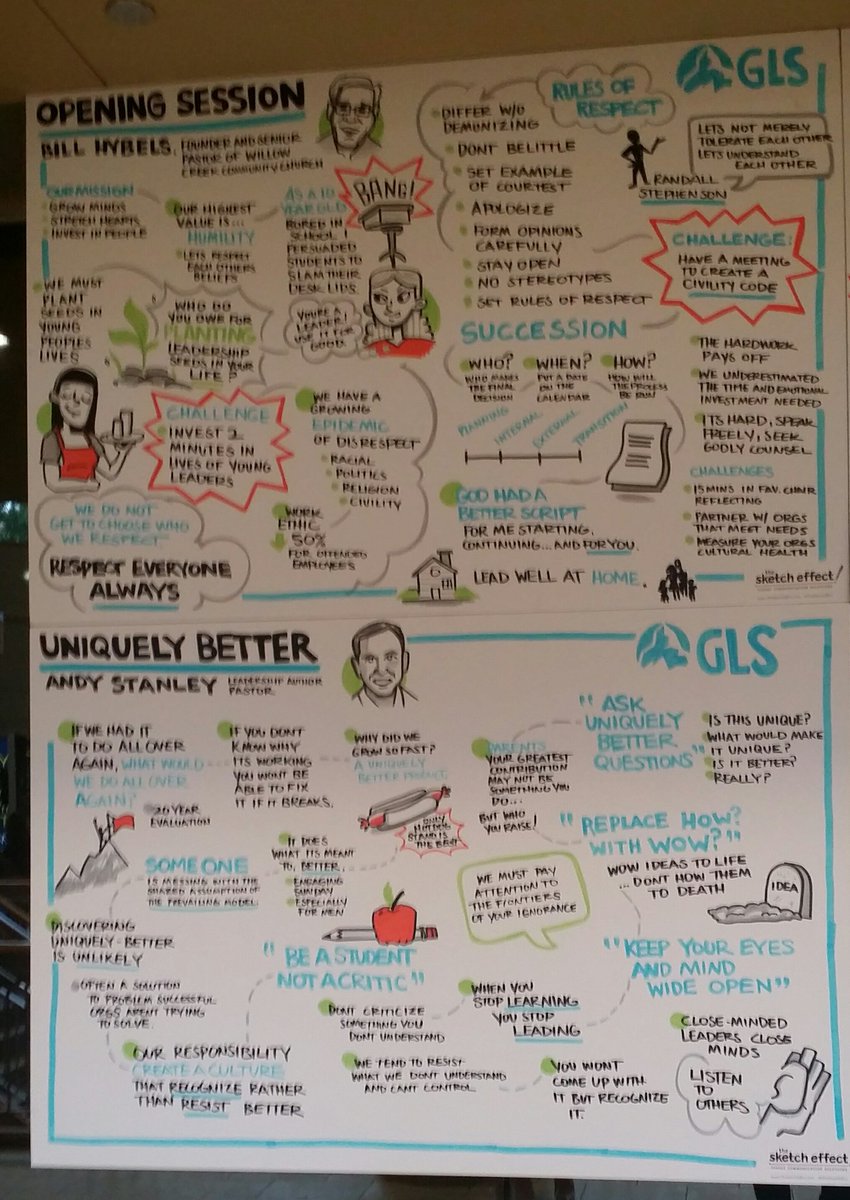 OPENING SESSION
BILL HYBELS, FOUNDER AND SENIOR
PASTOR OF WILLOW
CREEK COMMUNITY CHURCH
OUR MISSION
GROW MINDS
STRETCH HEARTS
INVEST IN PEOPLE
OUR HIGHEST
VALUE IS...
HUMILITY
LETS RESPECT
EACH OTHERS
BELIEFS
AS A 10
YEAR OLD
BORED IN
SCHOOL I
PERSUADED
STUDENTS TO
SLAM THEIR
DESK LIDS.
BANG!
YOU'RE A
LEADER!
USE IT FOR
GOOD.
WE MUST
PLANT
SEEDS IN
YOUNG
PEOPLES
LIVES
WHO DO
YOU OWE FOR
PLANTING
LEADERSHIP
SEEDS IN YOUR
LIFE?
CHALLENGE
INVEST 2
MINUTES IN
LIVES OF YOUNG
LEADERS
WE HAVE A
GROWING
EPIDEMIC
OF DISRESPECT
RACIAL
POLITICS
RELIGION
CIVILITY
WORK
ETHIC
50%
FOR OFFENDED
EMPLOYEES
WE DO NOT
GET TO CHOOSE WHO
WE RESPECT
RESPECT EVERYONE
ALWAYS
GLS
RULES OF
RESPECT
DIFFER W/O
DEMONIZING
DONT BELITTLE
SET EXAMPLE
OF COURTESY
APOLOGIZE
FORM OPINIONS
CAREFULLY
STAY OPEN
NO STEREOTYPES
SET RULES OF RESPECT
LETS NOT MERELY
TOLERATE EACH OTHER
LETS UNDERSTAND
EACH OTHER
RANDALL
STEPHENSON
CHALLENGE:
HAVE A MEETING
TO CREATE A
CIVILITY CODE
SUCCESSION
WHO?
WHO MAKES
THE FINAL
DECISION
WHEN?
PUT A DATE
ON THE
CALENDAR
HOW?
HOW WILL
THE PROCESS
BE RUN
PLANNING
INTERNAL
EXTERNAL
TRANSITION
THE HARDWORK
PAYS OFF
WE UNDERESTIMATED
THE TIME AND EMOTIONAL
INVESTMENT NEEDED
ITS HARD, SPEAK
FREELY, SEEK
GODLY COUNSEL
CHALLENGES
15 MINS IN FAV. CHAIR
REFLECTING
PARTNER W/ ORGS
THAT MEET NEEDS
MEASURE YOUR ORGS
CULTURAL HEALTH
GOD HAD A
BETTER SCRIPT
FOR ME STARTING,
CONTINUING... AND FOR YOU.
LEAD WELL AT HOME.
the
sketch effect
UNIQUELY BETTER
ANDY STANLEY LEADERSHIP AUTHOR
PASTOR
GLS
IF WE HAD IT
TO DO ALL OVER
AGAIN, WHAT WOULD
WE DO ALL OVER
AGAIN?
20 YEAR
EVALUATION
IF YOU DONT
KNOW WHY
ITS WORKING
YOU WONT BE
ABLE TO FIX
IT IF IT BREAKS.
WHY DID WE
GROW SO FAST?
A UNIQUELY
BETTER PRODUCT
ONLY
HOT DOG
STAND IS
THE BEST
PARENTS
YOUR GREATEST
CONTRIBUTION
MAY NOT BE
SOMETHING YOU
DO...
BUT WHO
YOU RAISE!
"ASK
UNIQUELY
BETTER
QUESTIONS"
IS THIS UNIQUE?
WHAT WOULD MAKE
IT UNIQUE?
IS IT BETTER?
REALLY?
SOMEONE
IS MESSING WITH THE
SHARED ASSUMPTION OF
THE PREVAILING MODEL.
IT DOES
WHAT ITS MEANT
TO, BETTER.
ENGAGING
SUNDAY
ESPECIALLY
FOR MEN
WE MUST PAY
ATTENTION TO
THE FRONTIERS
OF YOUR IGNORANCE
"REPLACE HOW?
WITH WOW?"
WOW IDEAS TO LIFE
...DONT HOW THEM
TO DEATH
IDEA
DISCOVERING
UNIQUELY-BETTER
IS UNLIKELY
OFTEN A SOLUTION
TO PROBLEM SUCCESSFUL
ORGS ARENT TRYING
TO SOLVE.
"BE A STUDENT
NOT A CRITIC"
DONT CRITICIZE
SOMETHING YOU
DONT UNDERSTAND
WHEN YOU
STOP LEARNING
YOU STOP
LEADING
"KEEP YOUR EYES
AND MIND
WIDE OPEN"
CLOSE-MINDED
LEADERS CLOSE
MINDS
OUR RESPONSIBILITY
CREATE A CULTURE
THAT RECOGNIZE RATHER
THAN RESIST BETTER
WE TEND TO RESIST
WHAT WE DONT UNDERSTAND
AND CANT CONTROL
YOU WONT
COME UP WITH
IT BUT RECOGNIZE
IT.
LISTEN
TO
OTHERS
the
sketch effect